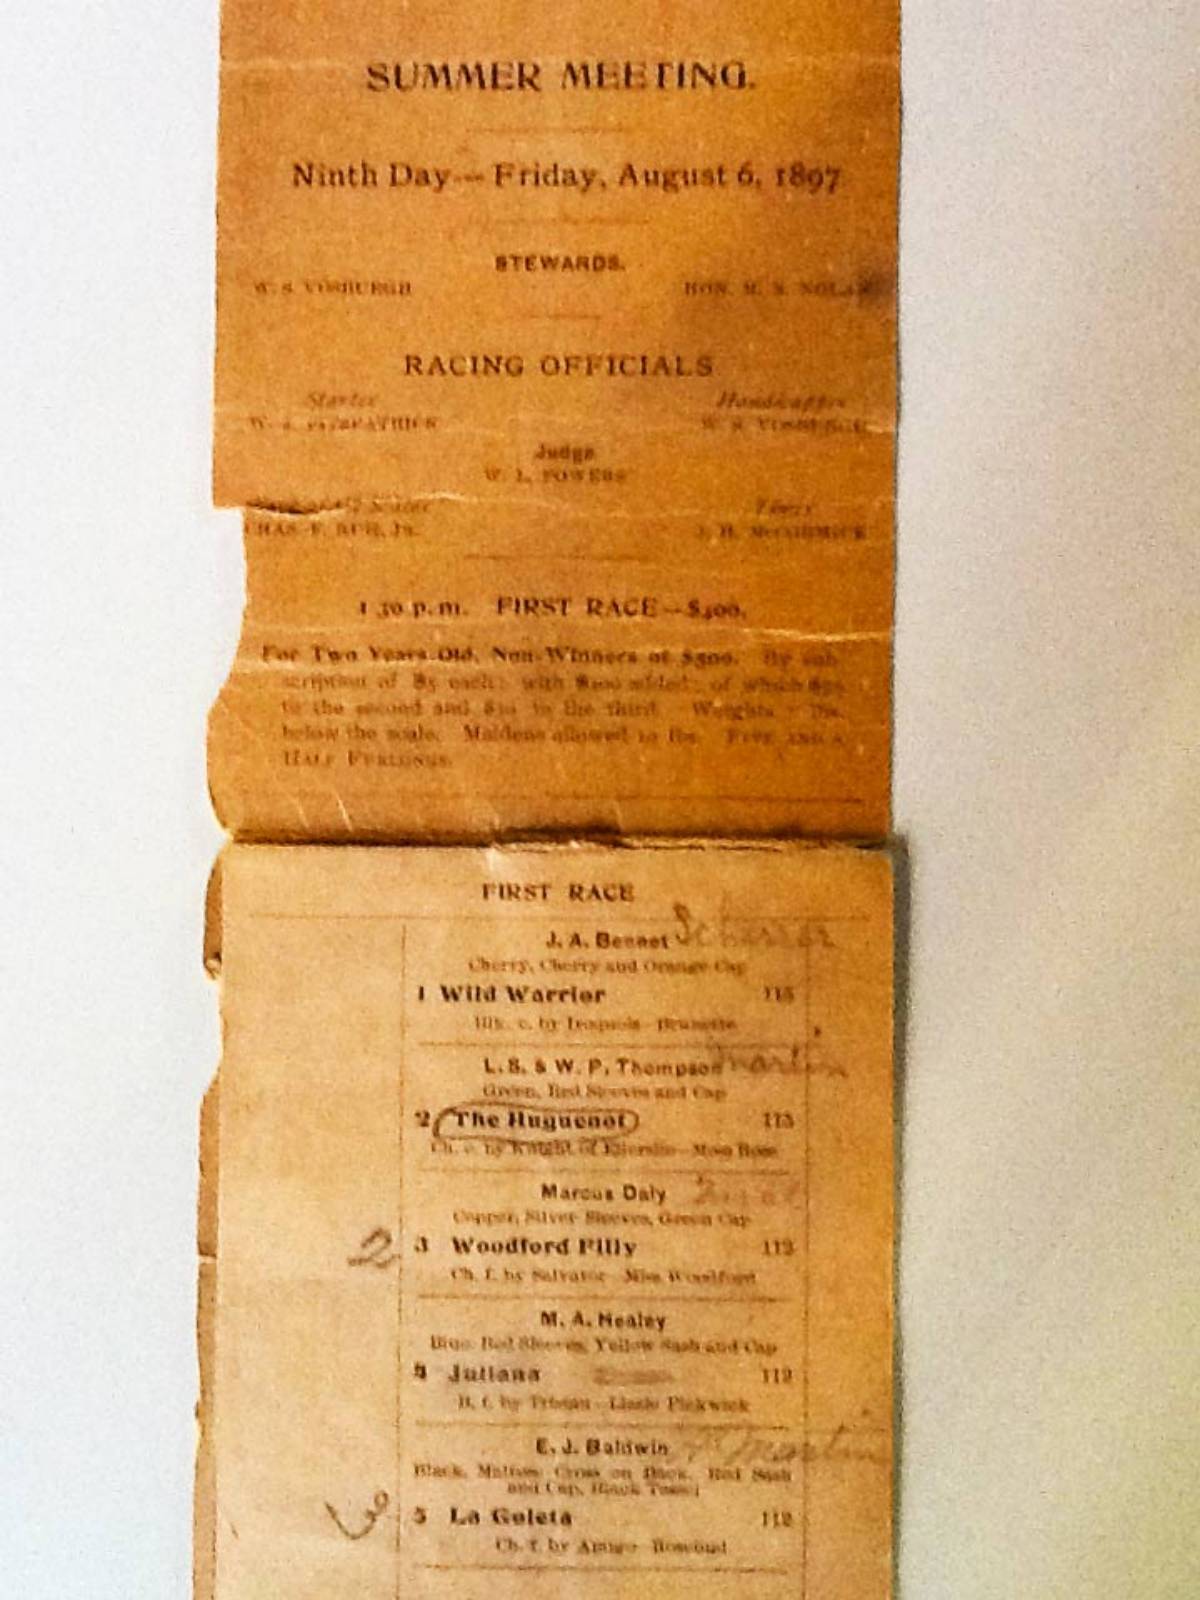 SUMMER MEETING.
Ninth Day — Friday, August 6, 1897
STEWARDS.
W. S. VOSBURGH HON. M. N. NOLAN
RACING OFFICIALS
Starter Handicapper
W. S. VOSBURGH
Judge
W. L. POWERS
Timer
J. H. McCORMICK
1 30 p. m. FIRST RACE — $400.
For Two Years Old, Non-Winners of $500. By sub-
scription of $5 each: with added; of which
to the second and to the third. Weights
below the scale. Maidens allowed 10 lbs. FIVE AND A
HALF FURLONGS.
FIRST RACE
J. A. Bennet
Cherry, Cherry and Orange Cap
1 Wild Warrior 115
Blk. c. by Iroquois—Brunette
L. S. & W. P. Thompson Martin
Green, Red Sleeves and Cap
2 The Huguenot 115
Ch. c. by Knight of Ellerslie—Moss Rose
Marcus Daly
Copper, Silver Sleeves, Green Cap
2 3 Woodford Filly 112
Ch. f. by Salvator—Miss Woodford
M. A. Healey
Blue, Red Sleeves, Yellow Sash and Cap
4 Juliana 112
B. f. by Tristan—Lizzie Pickwick
E. J. Baldwin Martin
Black, Maltese Cross on Back, Red Sash
and Cap, Black Tassel
5 La Goleta 112
Ch. f. by Amigo—Rosebud